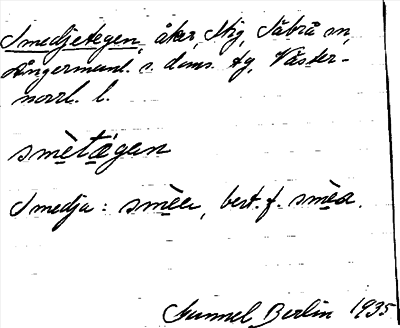 Smedjetegen, åker, Stig, Säbrå sn,
Ångermanl. s. doms. fg, Väster-
norrl. l.
smètägen
Smedja: smèe, best. f. smèa.
Gunnel Berlin 1935